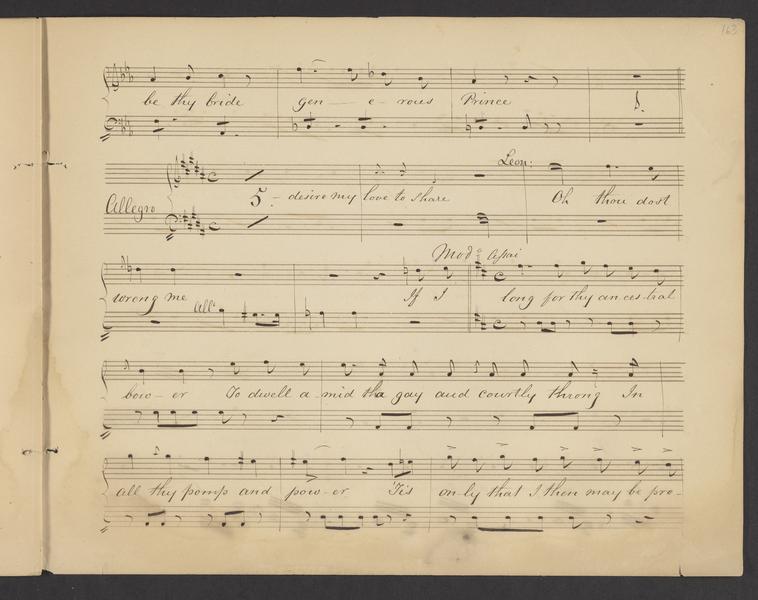 163
be thy bride gen — e — rous Prince
Leon:
Allegro 5 - desire my love to share Oh thou dost
Mod:º Assai
wrong me All:º If I long for thy an-ces-tral
bow - er To dwell a - mid the gay and courtly throng In
all thy pomp and pow - er 'Tis on-ly that I then may be pro-